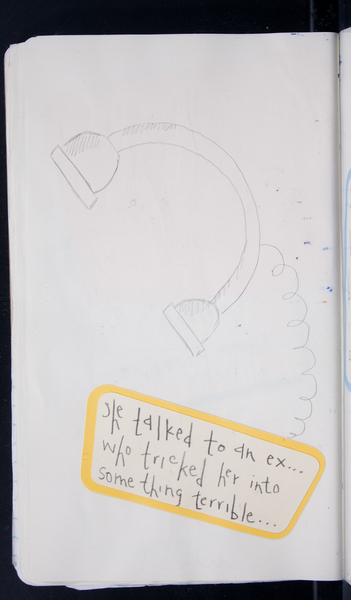 she talked to an ex...
who tricked her into
something terrible...